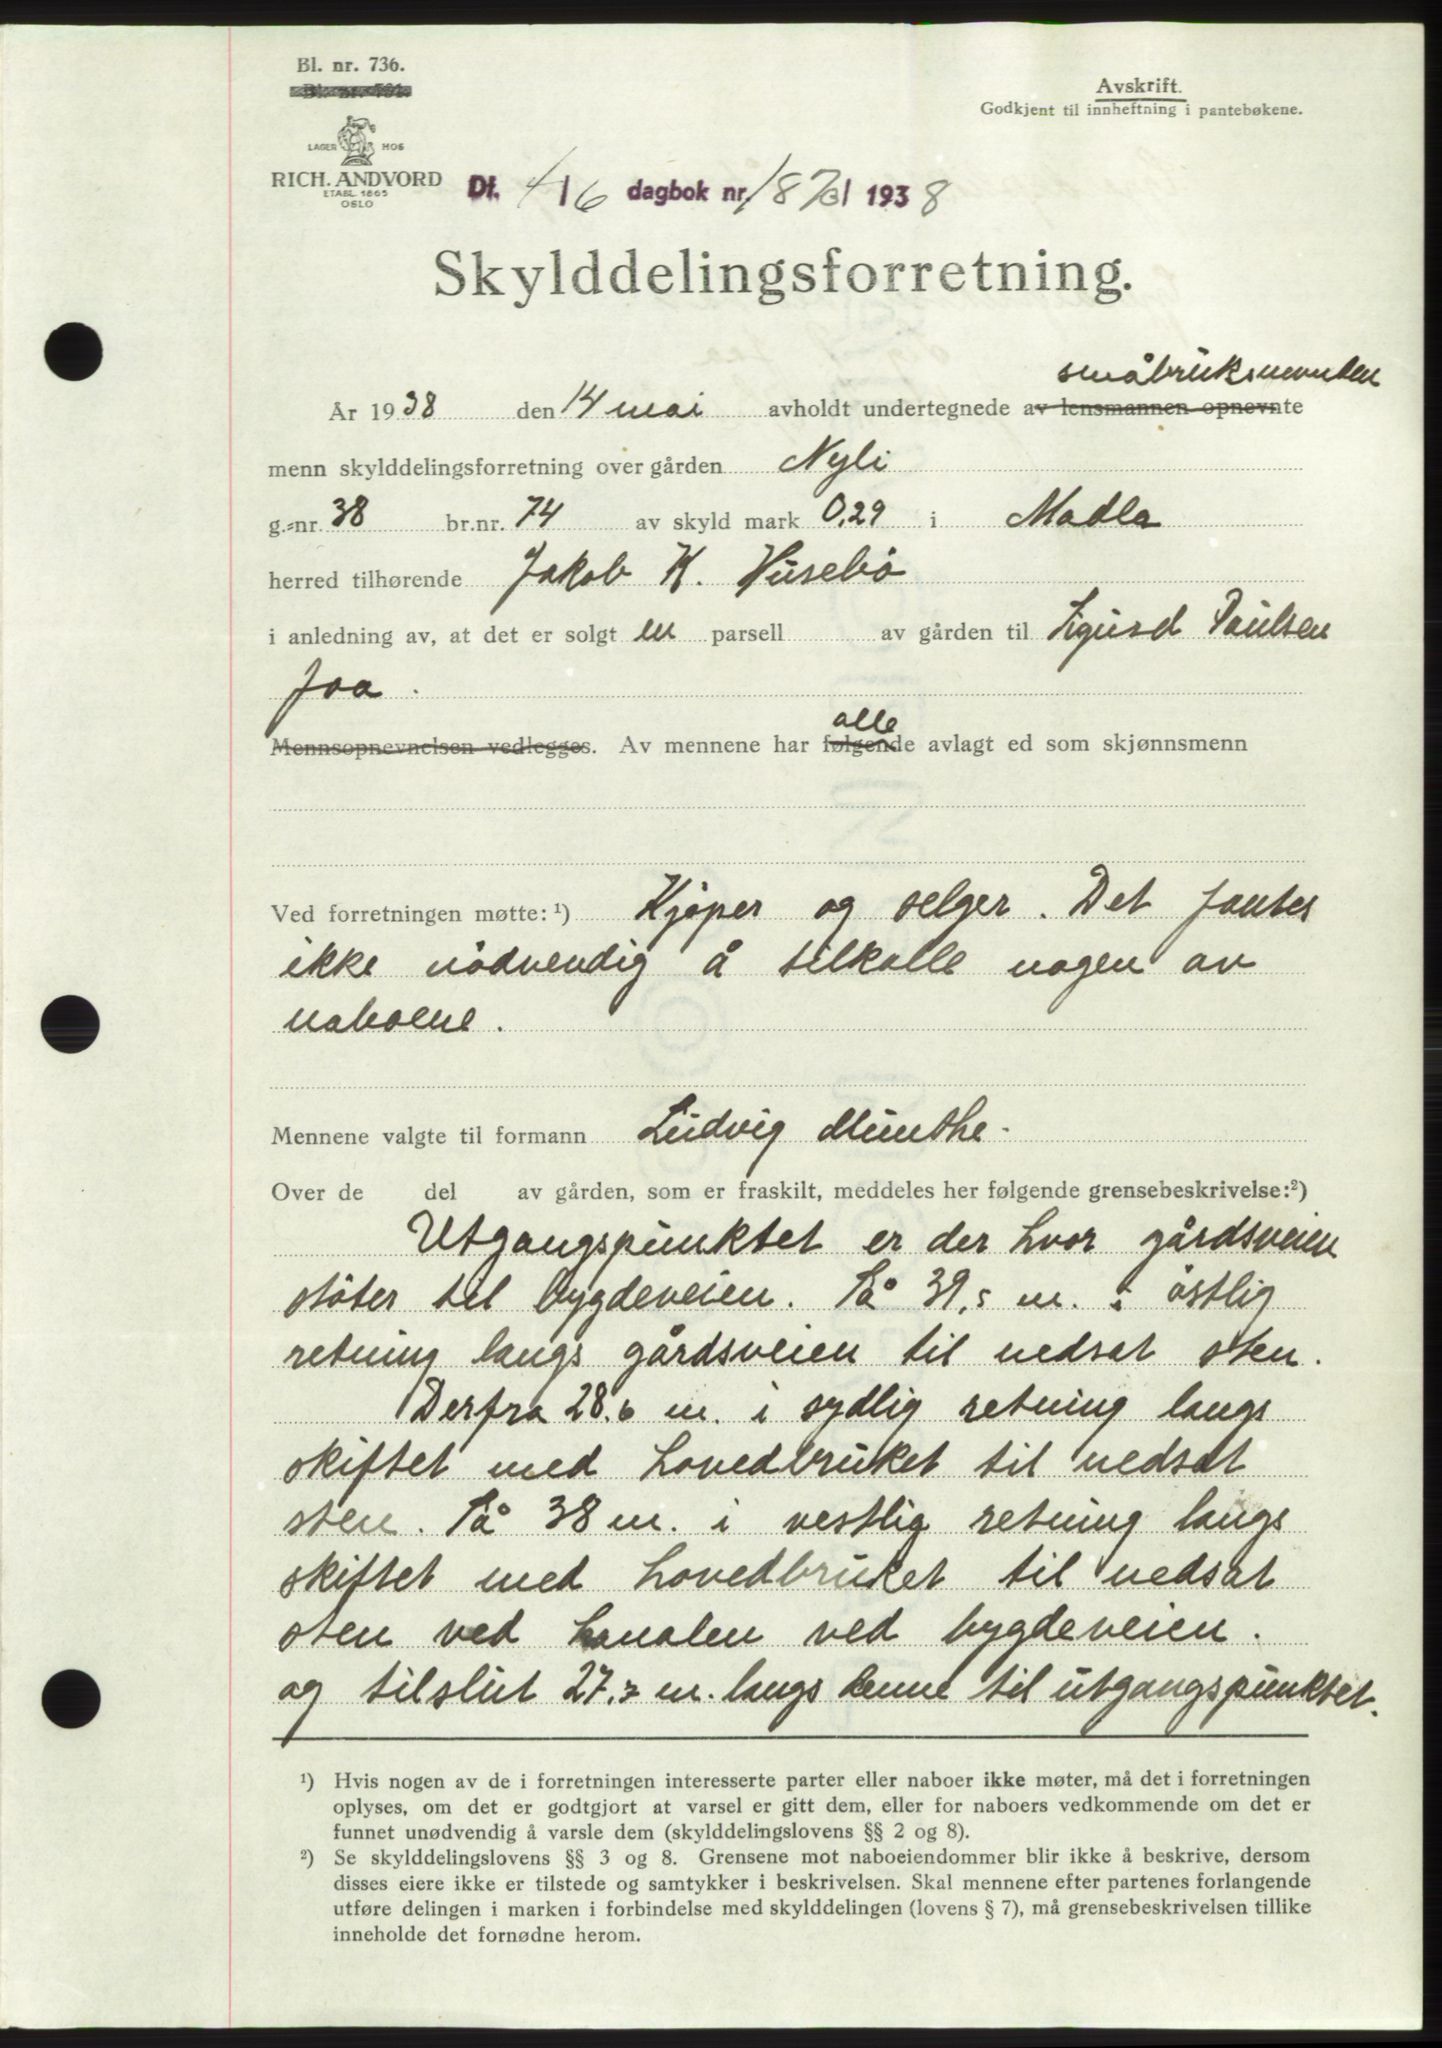 Bl. nr. 736.
Avskrift.
Godkjent til innheftning i pantebøkene.
LAGER HOS
RICH. ANDVORD
ETABL. 1865
OSLO
Df. 4/6 dagbok nr. 1938
Skylddelingsforretning.
småbruksnevnden
År 1938 den 14 mai avholdt undertegnede av lensmannen opnevnte
menn skylddelingsforretning over gården Nyli
g.-nr. 38 br.nr. 74 av skyld mark 0,29 i Madla
herred tilhørende Jakob K. Husebö
i anledning av, at det er solgt en parsell av gården til Sigurd Paulsen
Joa.
alle
Mennsopnevnelsen vedlegges. Av mennene har følgende avlagt ed som skjønnsmenn
Ved forretningen møtte: ¹) Kjöper og selger. Det fantes
ikke nödvendig å tilkalle nogen av
naboene.
Mennene valgte til formann Ludvig Munthe.
Over de del av gården, som er fraskilt, meddeles her følgende grensebeskrivelse:²)
Utgangspunktet er der hvor gårdsveien
stöter til bygdeveien. Så 39,5 m. i östlig
retning langs gårdsveien til nedsat sten.
Derfra 28,6 m. i sydlig retning langs
skiftet med hovedbruket til nedsat
sten. Så 38 m. i vestlig retning langs
skiftet med hovedbruket til nedsat
sten ved kanalen ved bygdeveien.
og tilslut 27,7 m. langs denne til utgangspunktet.
¹) Hvis nogen av de i forretningen interesserte parter eller naboer ikke møter, må det i forretningen
oplyses, om det er godtgjort at varsel er gitt dem, eller for naboers vedkommende om det er
funnet unødvendig å varsle dem (skylddelingslovens §§ 2 og 8).
²) Se skylddelingslovens §§ 3 og 8. Grensene mot naboeiendommer blir ikke å beskrive, dersom
disses eiere ikke er tilstede og samtykker i beskrivelsen. Skal mennene efter partenes forlangende
utføre delingen i marken i forbindelse med skylddelingen (lovens § 7), må grensebeskrivelsen tillike
inneholde det fornødne herom.